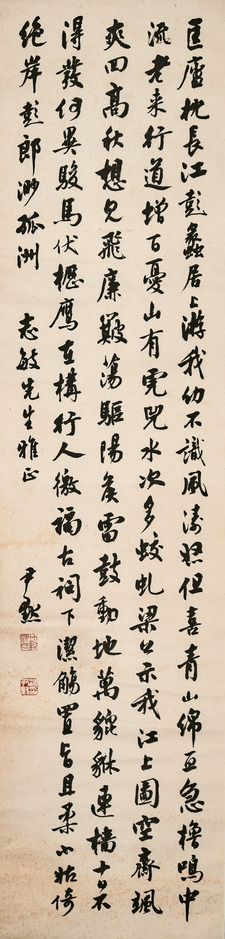 匡廬枕長江彭蠡居上游我幼不識風濤怒但喜青山綿亙急櫓鳴中
流老來行道增百憂山有虎兕水次多蛟虬梁公示我江上圖空齋颯
爽四高秋想見飛廉簸蕩驅陽侯雷鼓動地萬貔貅連檣十日不
得發何異駿馬伏櫪鷹在構行人徼福古祠下潔觴置旨且柔小姑倚
絕岸彭郎渺孤洲
志敏先生雅正
尹默